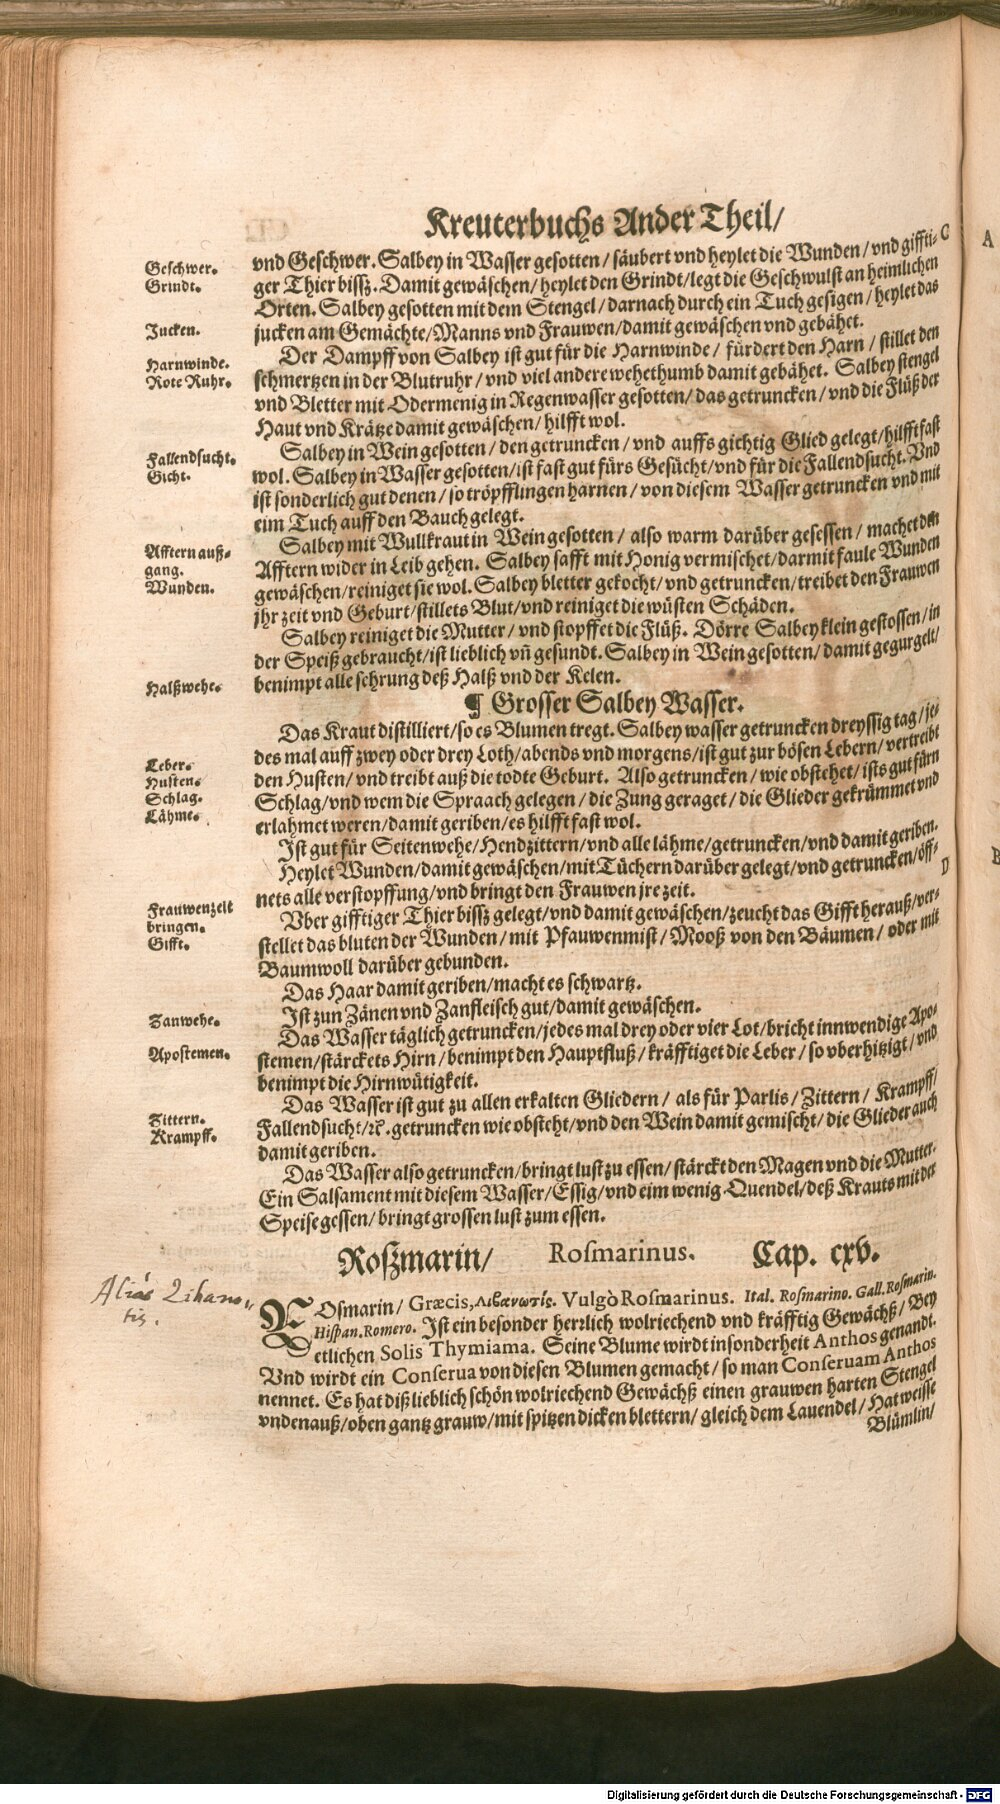 Kreuterbuchs Ander Theil/
vnd Geschwer. Salbey in Wasser gesotten / säubert vnd heylet die Wunden / vnd giffti- C
Geschwer.
ger Thier bissz. Damit gewäschen / heylet den Grindt / legt die Geschwulst an heimlichen
Grindt.
Orten. Salbey gesotten mit dem Stengel / darnach durch ein Tuch gesigen / heylet das
Jucken.
jucken am Gemächte / Manns vnd Frauwen / damit gewäschen vnd gebähet.
Der Dampff von Salbey ist gut für die Harnwinde / fürdert den Harn / stillet den
Harnwinde.
schmertzen in der Blutruhr / vnd viel andere wehethumb damit gebähet. Salbey stengel
Rote Ruhr.
vnd Bletter mit Odermenig in Regenwasser gesotten / das getruncken / vnd die Flüß der
Haut vnd Krätze damit gewäschen / hilfft wol.
Salbey in Wein gesotten / den getruncken / vnd auffs gichtig Glied gelegt / hilfft fast
Fallendsucht.
wol. Salbey in Wasser gesotten / ist fast gut fürs Gesücht / vnd für die Fallendsucht. Vnd
Gicht.
ist sonderlich gut denen / so tröpfflingen harnen / von diesem Wasser getruncken vnd mit
eim Tuch auff den Bauch gelegt.
Salbey mit Wullkraut in Wein gesotten / also warm darüber gesessen / machet den
Afftern auß-
gang.
Afftern wider in Leib gehen. Salbey safft mit Honig vermischet / darmit faule Wunden
Wunden.
gewäschen / reiniget sie wol. Salbey bletter gekocht / vnd getruncken / treibet den Frauwen
jhr zeit vnd Geburt / stillets Blut / vnd reiniget die wüsten Schäden.
Salbey reiniget die Mutter / vnd stopffet die Flüß. Dörre Salbey klein gestossen / in
der Speiß gebraucht / ist lieblich vñ gesundt. Salbey in Wein gesotten / damit gegurgelt /
Halßwehe.
benimpt alle sehrung deß Halß vnd der Kelen.
¶ Grosser Salbey Wasser.
Das Kraut distilliert / so es Blumen tregt. Salbey wasser getruncken dreyssig tag / je-
des mal auff zwey oder drey Loth / abends vnd morgens / ist gut zur bösen Lebern / vertreibt
Leber.
den Husten / vnd treibt auß die todte Geburt. Also getruncken / wie obstehet / ists gut fürn
Husten.
Schlag / vnd wem die Spraach gelegen / die Zung geraget / die Glieder gekrümmet vnd
Schlag.
Lähme.
erlahmet weren / damit geriben / es hilfft fast wol.
Ist gut für Seitenwehe / Hendzittern / vnd alle lähme / getruncken / vnd damit geriben.
Heylet Wunden / damit gewäschen / mit Tüchern darüber gelegt / vnd getruncken / öff- D
nets alle verstopffung / vnd bringt den Frauwen jre zeit.
Frauwenzeit
bringen.
Vber gifftiger Thier bissz gelegt / vnd damit gewäschen / zeucht das Gifft herauß / ver-
Gifft.
stellet das bluten der Wunden / mit Pfauwenmist / Mooß von den Bäumen / oder mit
Baumwoll darüber gebunden.
Das Haar damit geriben / macht es schwartz.
Ist zun Zänen vnd Zanfleisch gut / damit gewäschen.
Zanwehe.
Das Wasser täglich getruncken / jedes mal drey oder vier Lot / bricht innwendige Apo-
Apostemen.
stemen / stärckets Hirn / benimpt den Hauptfluß / kräfftiget die Leber / so vberhitzigt / vnd
benimpt die Hirnwütigkeit.
Das Wasser ist gut zu allen erkalten Gliedern / als für Parlis / Zittern / Krampff /
Zittern.
Fallendsucht / ꝛc. getruncken wie obsteht / vnd den Wein damit gemischt / die Glieder auch
Krampff.
damit geriben.
Das Wasser also getruncken / bringt lust zu essen / stärckt den Magen vnd die Mutter.
Ein Salsament mit diesem Wasser / Essig / vnd eim wenig Quendel / deß Krauts mit der
Speise gessen / bringt grossen lust zum essen.
Roßmarin / Rosmarinus. Cap. cxv.
Aliàs Libano-
tis.
ROsmarin / Græcis, Λιβανωτίς. Vulgò Rosmarinus. Ital. Rosmarino. Gall. Rosmarin.
Hispan. Romero. Ist ein besonder herrlich wolriechend vnd kräfftig Gewächß / Bey
etlichen Solis Thymiama. Seine Blume wirdt insonderheit Anthos genandt.
Vnd wirdt ein Conserua von diesen Blumen gemacht / so man Conseruam Anthos
nennet. Es hat diß lieblich schön wolriechend Gewächß einen grauwen harten Stengel
vndenauß / oben gantz grauw / mit spitzen dicken blettern / gleich dem Lauendel / Hat weisse
Blümlin /
A
B
Digitalisierung gefördert durch die Deutsche Forschungsgemeinschaft - DFG